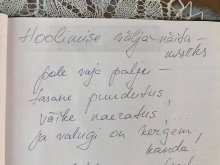 Hoolimise välja näita-
miseks
pole vaja palju
tarane puudutus,
väike naeratus, ...
ja valugi on kergem
kanda!